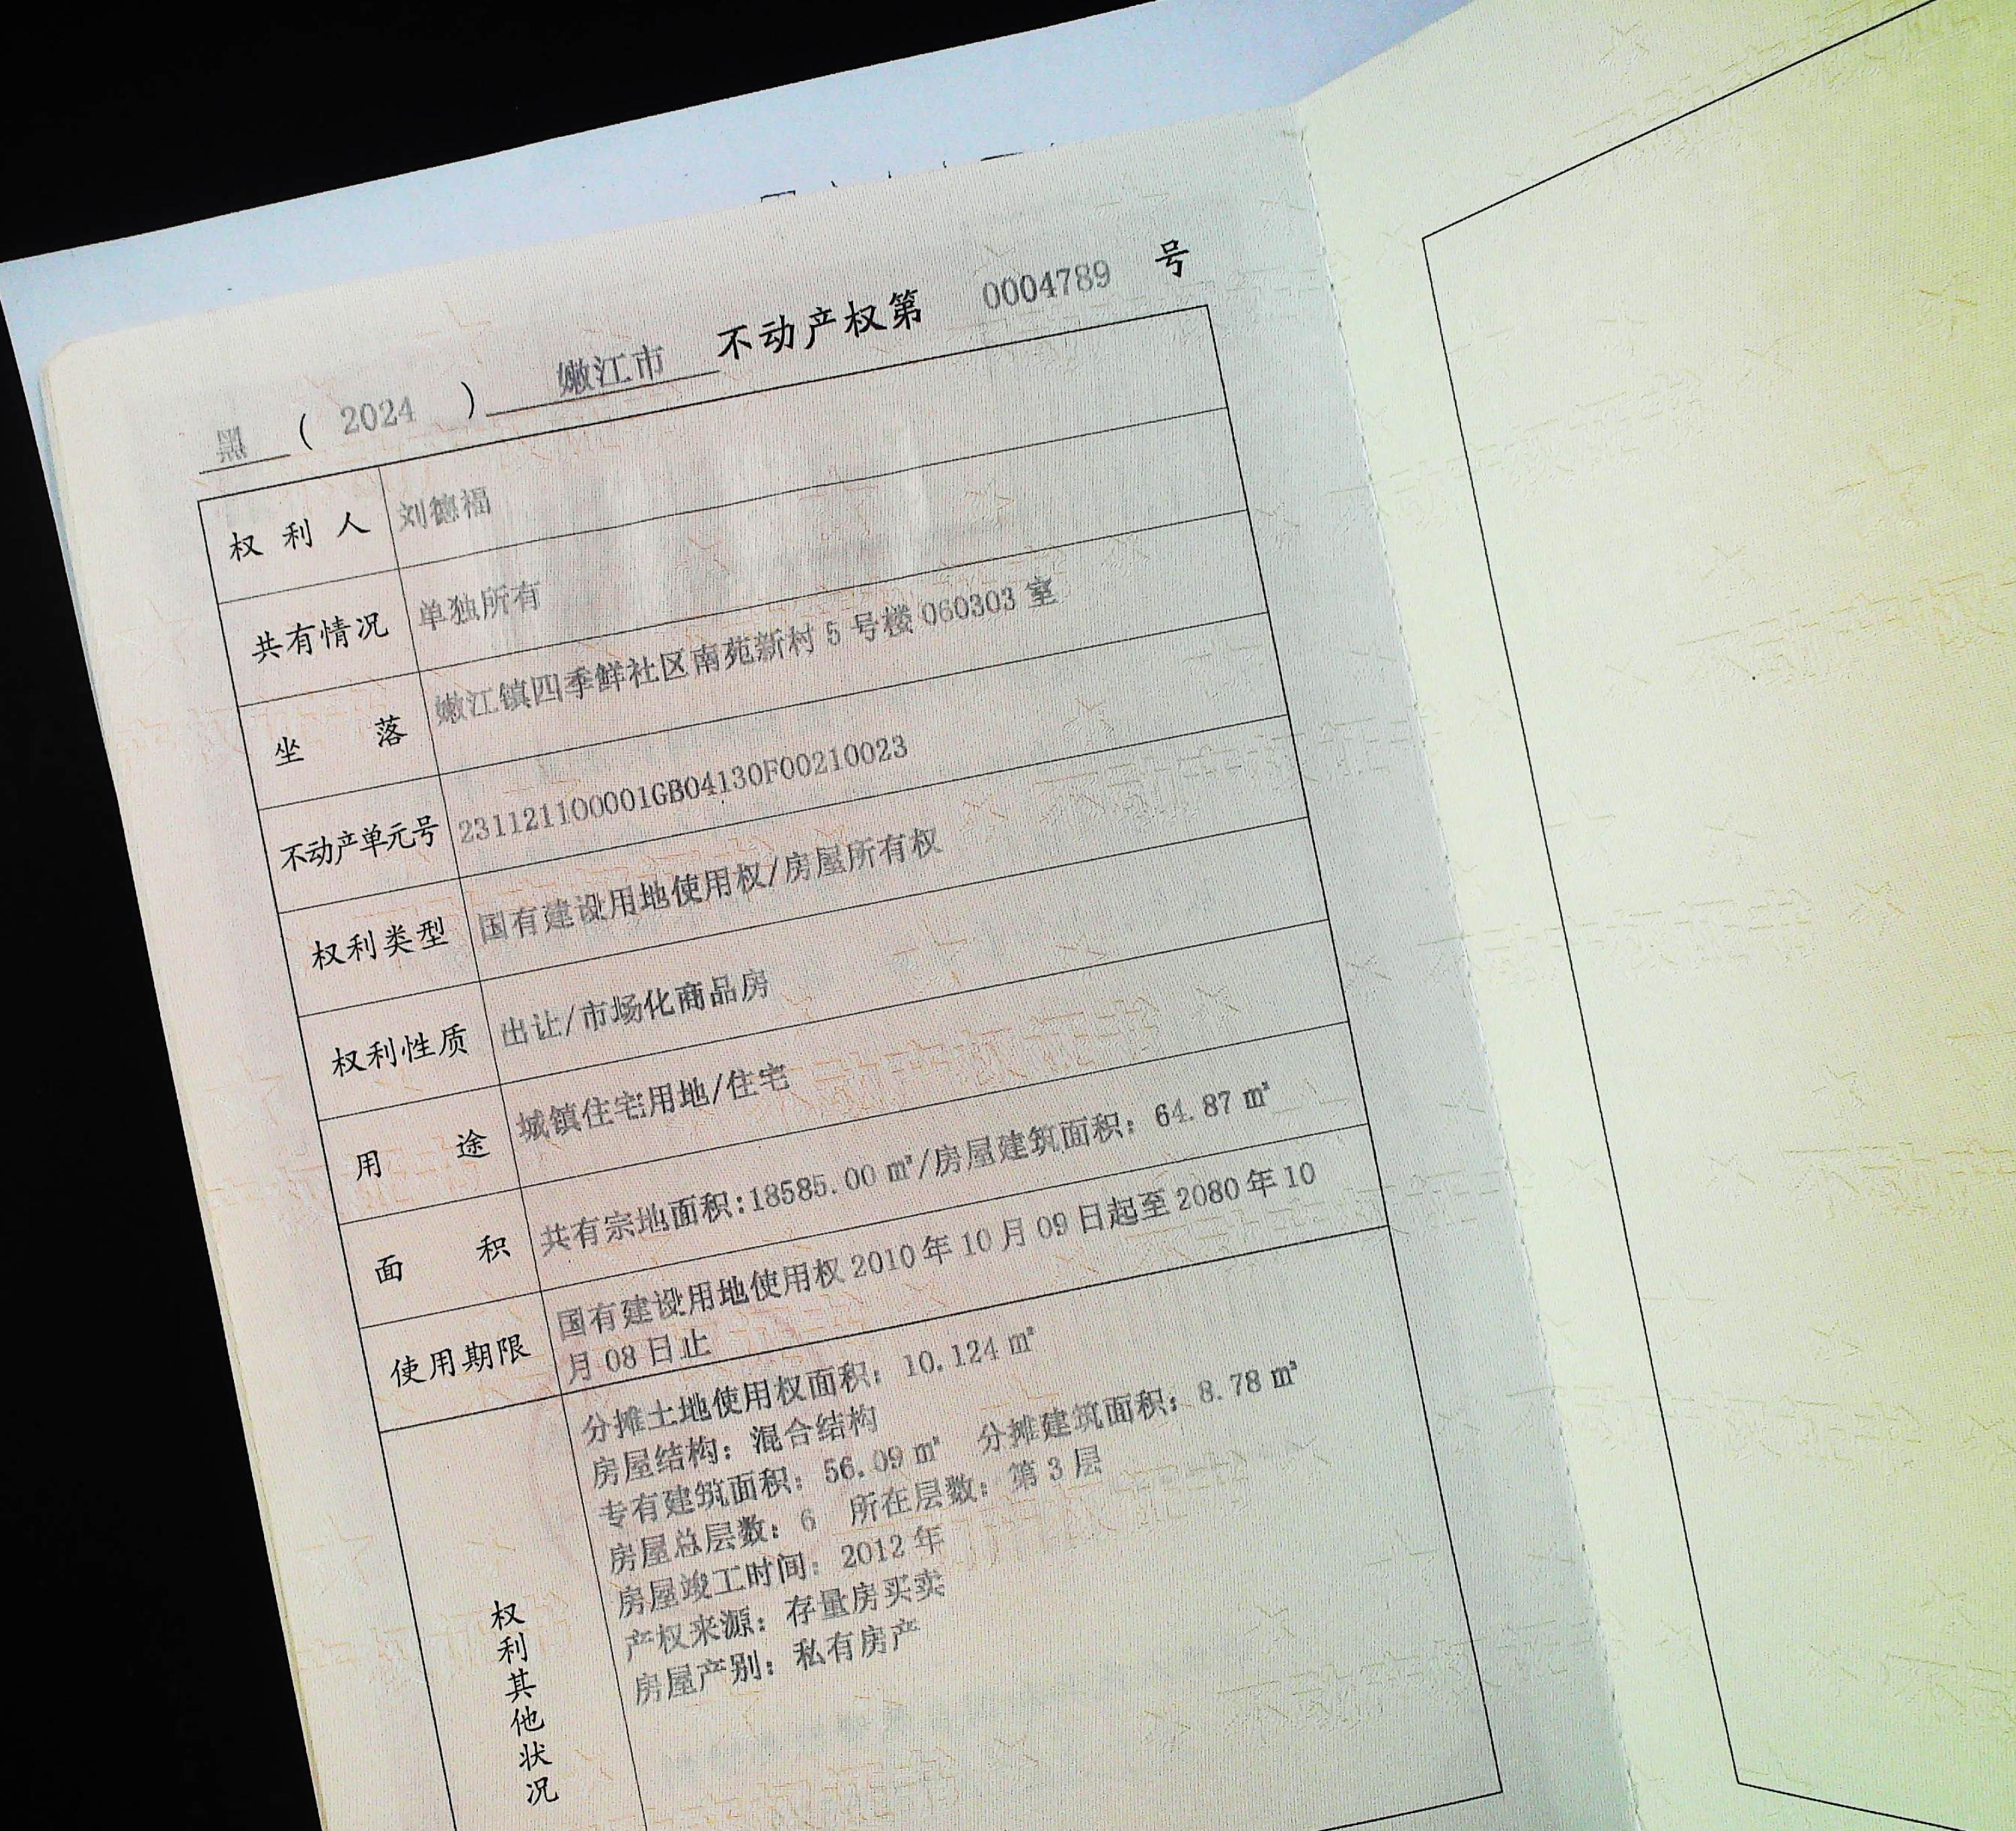 黑 ( 2024 ) 嫩江市 不动产权第 0004789 号
权利人 刘德福
共有情况 单独所有
坐落 嫩江镇四季鲜社区南苑新村 5 号楼 060303 室
不动产单元号 231121100001GB04130F00210023
权利类型 国有建设用地使用权/房屋所有权
权利性质 出让/市场化商品房
用途 城镇住宅用地/住宅
面积 共有宗地面积:18585.00 ㎡/房屋建筑面积: 64.87 ㎡
使用期限 国有建设用地使用权 2010 年 10 月 09 日起至 2080 年 10
月 08 日止
权利其他状况
分摊土地使用权面积: 10.124 ㎡
房屋结构: 混合结构
专有建筑面积: 56.09 ㎡ 分摊建筑面积: 8.78 ㎡
房屋总层数: 6 所在层数: 第 3 层
房屋竣工时间: 2012 年
产权来源: 存量房买卖
房屋产别: 私有房产